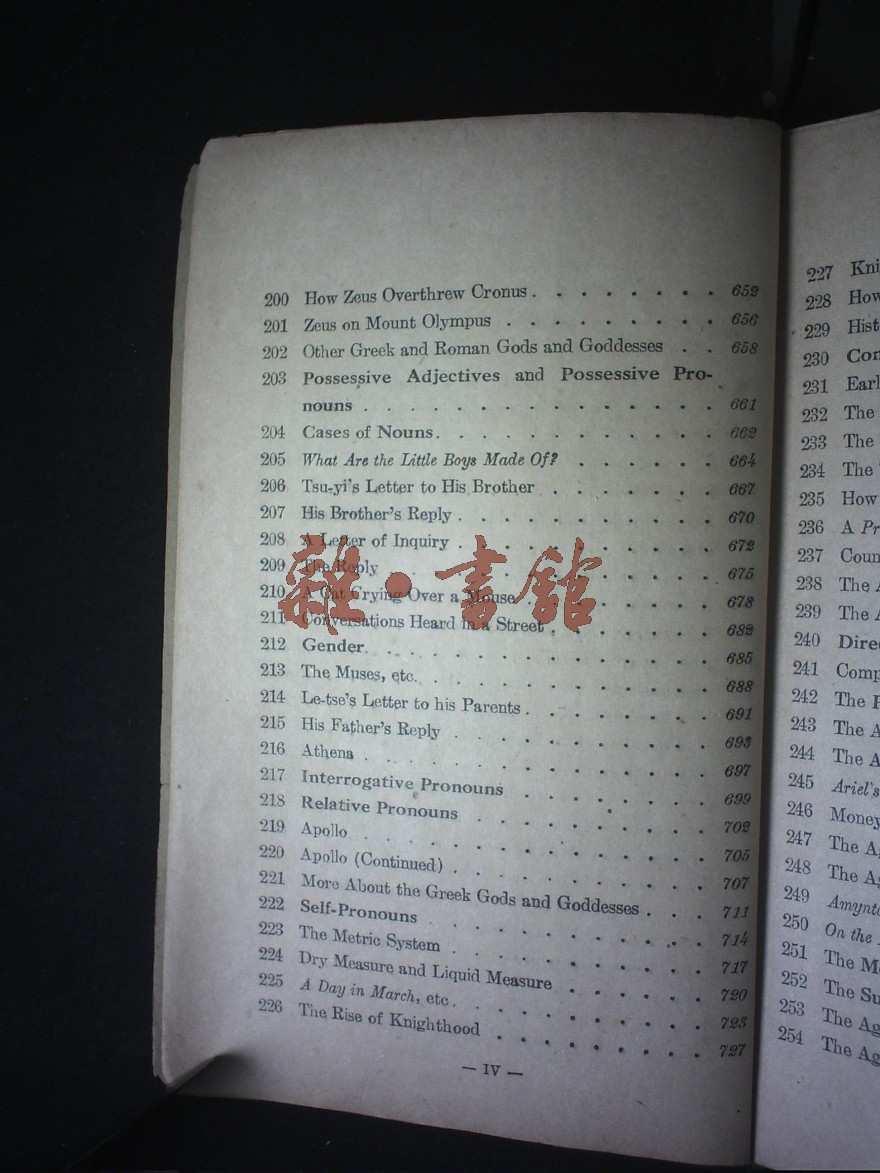 200 How Zeus Overthrew Cronus . . . . . . . . 652
201 Zeus on Mount Olympus . . . . . . . . . 656
202 Other Greek and Roman Gods and Goddesses . . 658
203 Possessive Adjectives and Possessive Pro-
nouns . . . . . . . . . . . . . . . . 661
204 Cases of Nouns . . . . . . . . . . . . . 662
205 What Are the Little Boys Made Of? . . . . . . 664
206 Tsu-yi's Letter to His Brother . . . . . . . 667
207 His Brother's Reply . . . . . . . . . . . 670
208 A Letter of Inquiry . . . . . . . . . . . 672
209 The Reply . . . . . . . . . . . . . 675
210 A Cat Crying Over a Mouse . . . . . . . . 678
211 Conversations Heard in a Street . . . . . . . 682
212 Gender . . . . . . . . . . . . . . . 685
213 The Muses, etc. . . . . . . . . . . . . 688
214 Le-tse's Letter to his Parents . . . . . . . . 691
215 His Father's Reply . . . . . . . . . . . 693
216 Athena . . . . . . . . . . . . . . . 697
217 Interrogative Pronouns . . . . . . . . . 699
218 Relative Pronouns . . . . . . . . . . . 702
219 Apollo . . . . . . . . . . . . . . . 705
220 Apollo (Continued) . . . . . . . . . . . 707
221 More About the Greek Gods and Goddesses . . . 711
222 Self-Pronouns . . . . . . . . . . . . 714
223 The Metric System . . . . . . . . . . . 717
224 Dry Measure and Liquid Measure . . . . . . 720
225 A Day in March, etc. . . . . . . . . . . 723
226 The Rise of Knighthood . . . . . . . . . 727
— IV —
雜·書館
227 Kni
228 How
229 Hist
230 Con
231 Earl
232 The
233 The
234 The
235 How
236 A Pr
237 Coun
238 The A
239 The A
240 Direc
241 Comp
242 The
243 The A
244 The A
245 Ariel's
246 Money
247 The Ag
248 The Ag
249 Amynta
250 On the
251 The Me
252 The Su
253 The Ag
254 The Ag